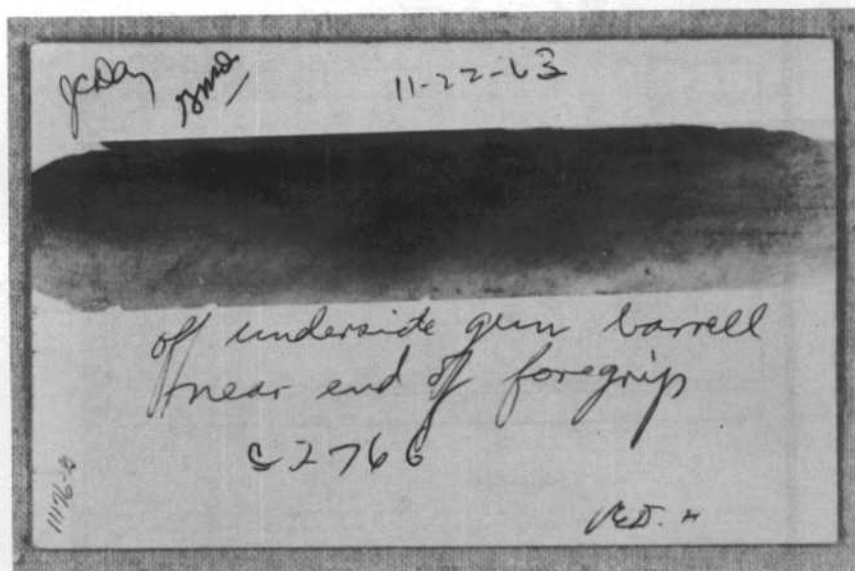 JCDay 11-22-63
off underside gun barrell
near end of foregrip
C2766